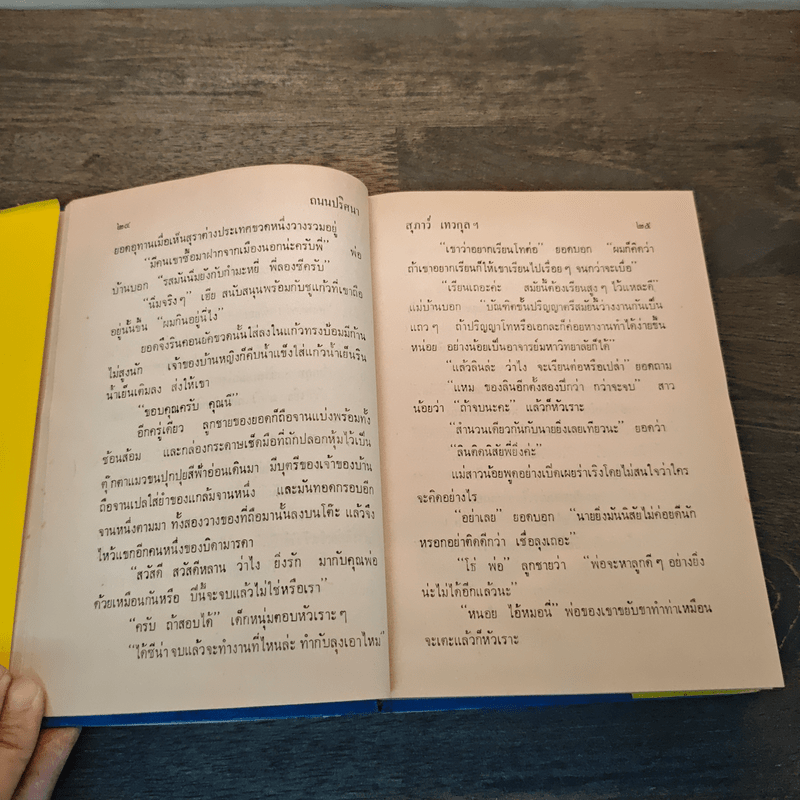 ๒๔
ถนนปริศนา
ยอดอุทานเมื่อเห็นสุราต่างประเทศขวดหนึ่งวางรวมอยู่
“มีคนเขาซื้อมาฝากจากเมืองนอกน่ะครับพี่” พ่อ
บ้านบอก “รสมันนิ่มยังกับกำมะหยี่ พี่ลองซีครับ”
“นิ่มจริงๆ” เฮีย สนับสนุนพร้อมกับชูแก้วที่เขาถือ
อยู่นั้นขึ้น “ผมกินอยู่นี่ไง”
ยอดจึงรินคอนยัคขวดนั้นใส่ลงในแก้วทรงป้อมมีก้าน
ไม่สูงนัก เจ้าของบ้านหญิงก็คีบน้ำแข็งใส่แก้วน้ำเย็นริน
น้ำเย็นเติมลง ส่งให้เขา
“ขอบคุณครับ คุณนี”
อีกครู่เดียว ลูกชายของยอดก็ถือจานแบ่งพร้อมทั้ง
ช้อนส้อม และกล่องกระดาษเช็ดมือที่ถักปลอกหุ้มไว้เป็น
ตุ๊กตาแมวขนปุกปุยสีฟ้าอ่อนเดินมา มีบุตรีของเจ้าของบ้าน
ถือจานเปลใส่ยำของแกล้มจานหนึ่ง และมันทอดกรอบอีก
จานหนึ่งตามมา ทั้งสองวางของที่ถือมานั้นลงบนโต๊ะ แล้วจึง
ไหว้แขกอีกคนหนึ่งของบิดามารดา
“สวัสดี สวัสดีหลาน ว่าไง ยิ่งรัก มากับคุณพ่อ
ด้วยเหมือนกันหรือ ปีนี้จะจบแล้วไม่ใช่หรือเรา”
“ครับ ถ้าสอบได้” เด็กหนุ่มตอบหัวเราะๆ
“ได้ซีน่า จบแล้วจะทำงานที่ไหนล่ะ ทำกับลุงเอาไหม”
สุภาว์ เทวกุลฯ
๒๕
“เขาว่าอยากเรียนโทต่อ” ยอดบอก “ผมก็คิดว่า
ถ้าเขาอยากเรียนก็ให้เขาเรียนไปเรื่อยๆ จนกว่าจะเบื่อ”
“เรียนเถอะค่ะ สมัยนี้ต้องเรียนสูงๆ ไว้แหละดี”
แม่บ้านบอก “บัณฑิตชั้นปริญญาตรีสมัยนี้ว่างงานกันเป็น
แถวๆ ถ้าปริญญาโทหรือเอกละก็ค่อยหางานทำได้ง่ายขึ้น
หน่อย อย่างน้อยเป็นอาจารย์มหาวิทยาลัยก็ได้”
“แล้วลินล่ะ ว่าไง จะเรียนต่อหรือเปล่า” ยอดถาม
“แหม ของลินอีกตั้งสองปีกว่า กว่าจะจบ” สาว
น้อยว่า “ถ้าจบนะคะ” แล้วก็หัวเราะ
“สำนวนเดียวกันกับนายยิ่งเลยเทียวนะ” ยอดว่า
“ลินติดนิสัยพี่ยิ่งค่ะ”
แม่สาวน้อยพูดอย่างเบิดเผยร่าเริงโดยไม่สนใจว่าใคร
จะคิดอย่างไร
“อย่าเลย” ยอดบอก “นายยิ่งมันนิสัยไม่ค่อยดีนัก
หรอกอย่าติดดีกว่า เชื่อลุงเถอะ”
“โธ่ พ่อ” ลูกชายว่า “พ่อจะหาลูกดีๆ อย่างยิ่ง
น่ะไม่ได้อีกแล้วนะ”
“หนอย ไอ้หมอนี่” พ่อของเขาขยับขาทำท่าเหมือน
จะเตะแล้วก็หัวเราะ